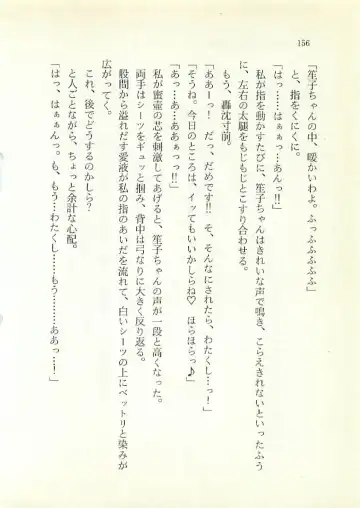 156
「笙子ちゃんの中、暖かいわよ。ふっふふふふふ」
と、指をくにくに。
「はっ……はぁぁ…あんっ!!」
私が指を動かすたびに、笙子ちゃんはきれいな声で鳴き、こらえきれないといったふう
に、左右の太腿をもじもじとこすり合わせる。
もう、轟沈寸前。
「ああーっ!　だっ、だめです!!　そ、そんなにされたら、わたくし…っ!」
「そうね。今日のところは、イッてもいいかしらね♡　ほらほらっ♪」
「あっ…あ…ああぁっっ!!」
私が蜜壺の芯を刺激してあげると、笙子ちゃんの声が一段と高くなった。
両手はシーツをギュッと掴み、背中は弓なりに大きく反り返る。
股間から溢れだす愛液が私の指のあいだを流れて、白いシーツの上にベットリと染みが
広がってく。
これ、後でどうするのかしら?
と人ごとながら、ちょっと余計な心配。
「はっ、はぁぁんっ。も、もう…わたくし……もう………ああっ…!」